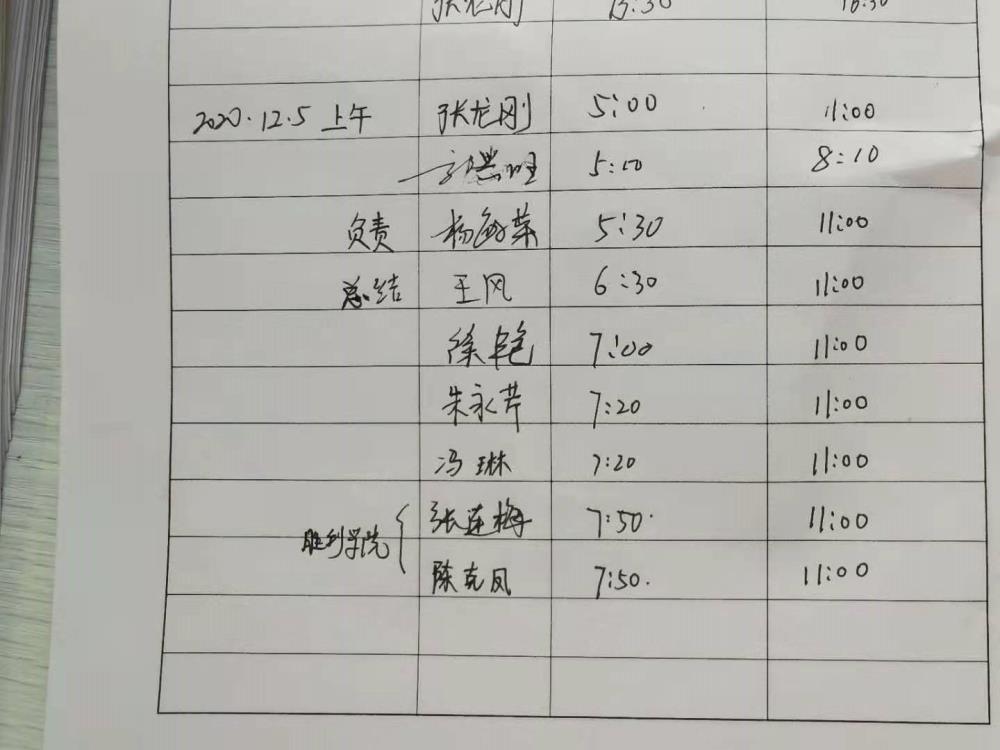 张龙刚 15:30 18:30
2020.12.5 上午 张龙刚 5:00 11:00
5:10 8:10
负责 杨荣 5:30 11:00
总结 王风 6:30 11:00
徐艳 7:00 11:00
朱永芹 7:20 11:00
冯琳 7:20 11:00
胜利学院 张莲梅 7:50. 11:00
陈克凤 7:50. 11:00